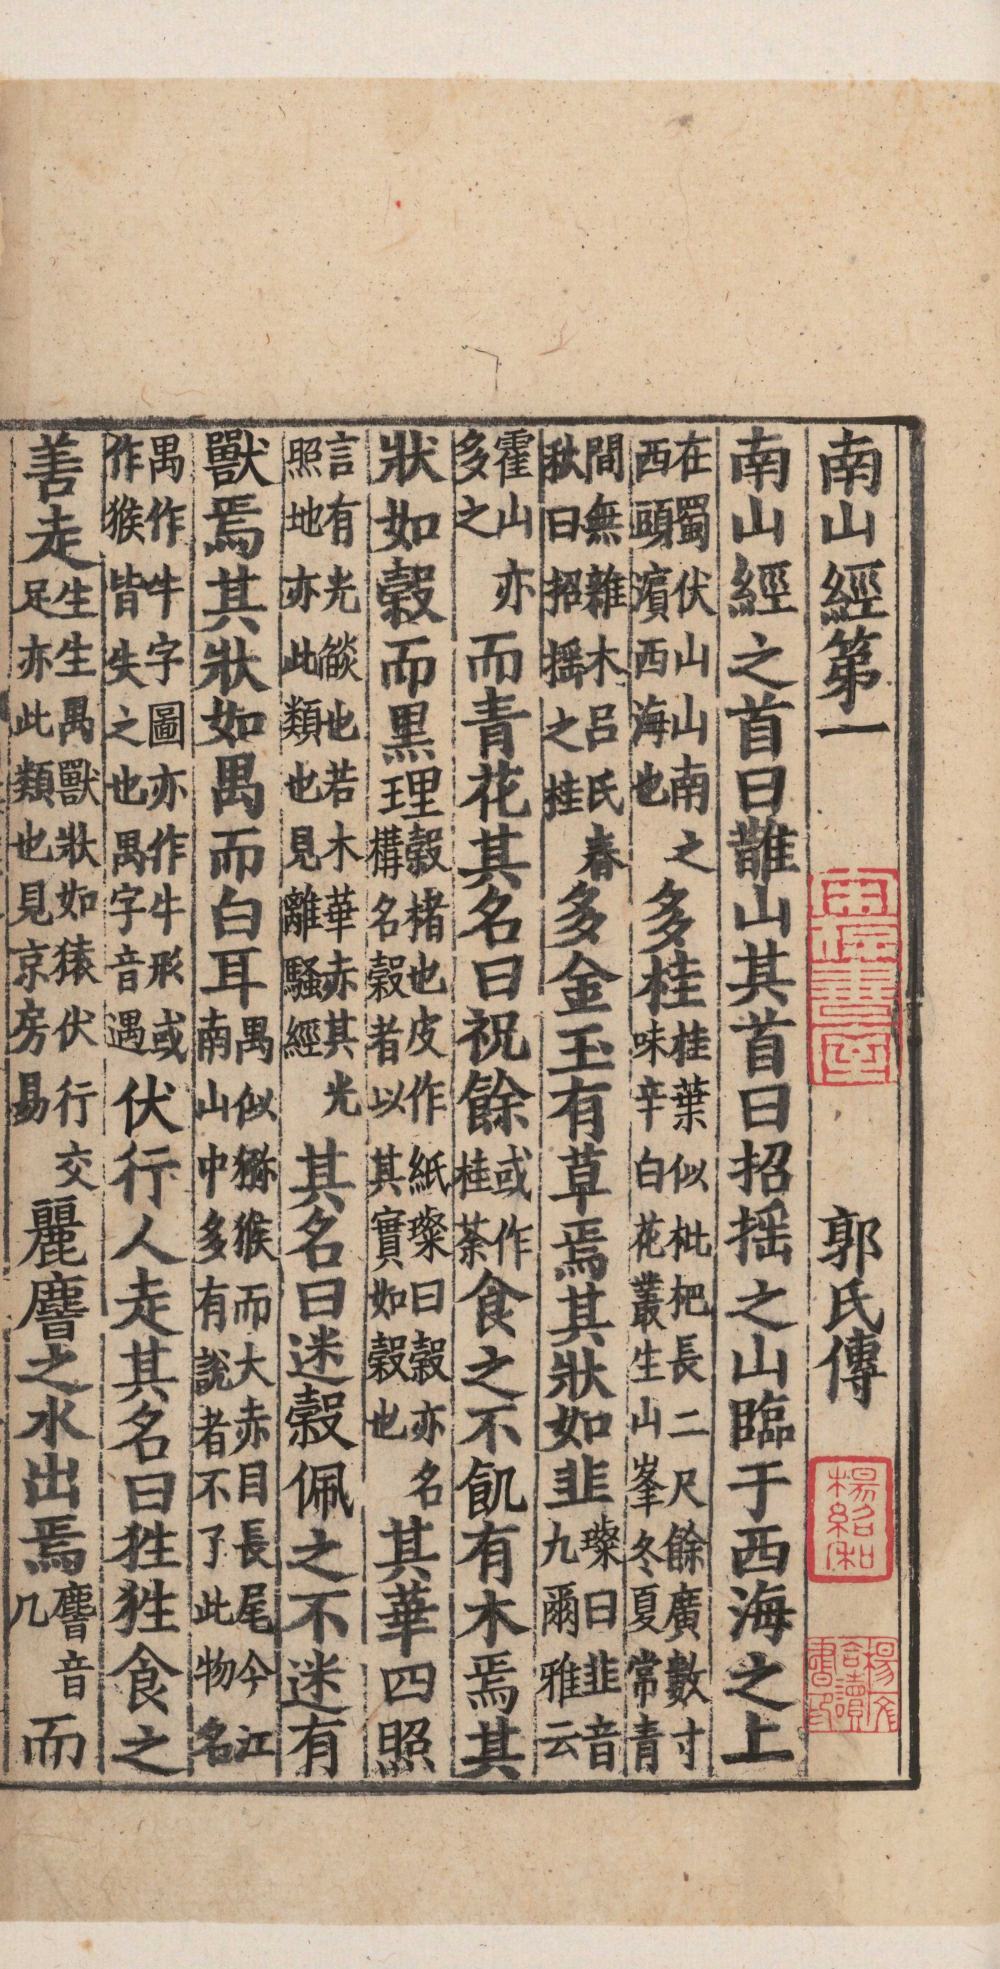 南山經第一 郭氏傳
南山經之首曰䧿山其首曰招揺之山臨于西海之上
在蜀伏山山南之西頭濵西海也多桂桂葉似枇杷長二尺餘廣數寸味辛白花叢生山峯冬夏常青
間無雜木吕氏春秋曰招揺之桂多金玉有草焉其狀如韭璨曰韭音九爾雅云
霍山亦多之而青花其名曰祝餘或作桂荼食之不飢有木焉其
狀如榖而黒理榖楮也皮作紙璨曰榖亦名構名榖者以其實如榖也其華四照
言有光燄也若木華赤其光照地亦此類也見離騷經其名曰迷榖佩之不迷有
獸焉其狀如禺而白耳禺似獼猴而大赤目長尾今江南山中多有說者不了此物名
禺作牛字圖亦作牛形或作猴皆失之也禺字音遇伏行人走其名曰狌狌食之
善走生生禺獸狀如猿伏行交足亦此類也見京房易麗𪊨之水出焉𪊨音几而
楊紹和